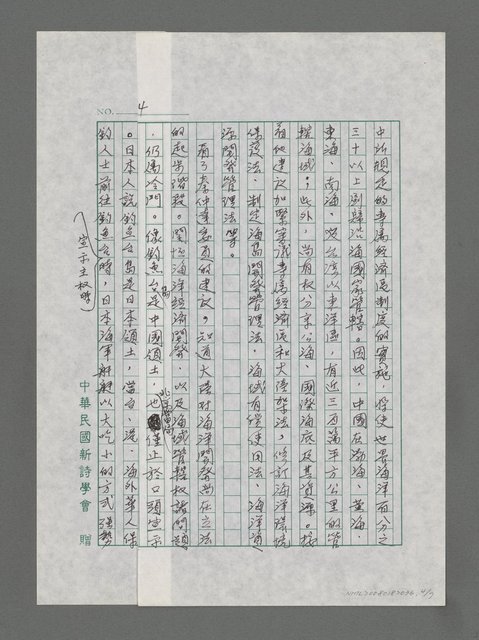 NO. 4
中所規定的專屬經濟區制度的實施，將使世界海洋百分之
三十以上別歸沿海國家管轄。因此，中國在渤海、黃海、
東海、南海、以及台灣以東洋區，有近三百萬平方公里的管
轄海域；此外，尚有权分享公海、國際海底及其資源。接
着他建议加緊審議專屬經濟區和大陸架法，修訂海洋環境
保護法、制定海島開發管理法、海域有償使用法、海洋資
源開發管理法等。
有了秦仲達委員的建议，知道大陸对海洋開發尚在立法
的起步階段。関於海洋經濟開發，以及海域管轄权諸問題
，仍属冷門。像釣魚台島是中國領土，也僅止於口頭宣示
。日本人説釣魚台島是日本領土，當台、港、海外華人保
釣人士前往釣魚台宣示主权時，日本海軍艦艇以大吃小的方式强勢
中華民國新詩學會 贈
NMTL20080182036 4/7